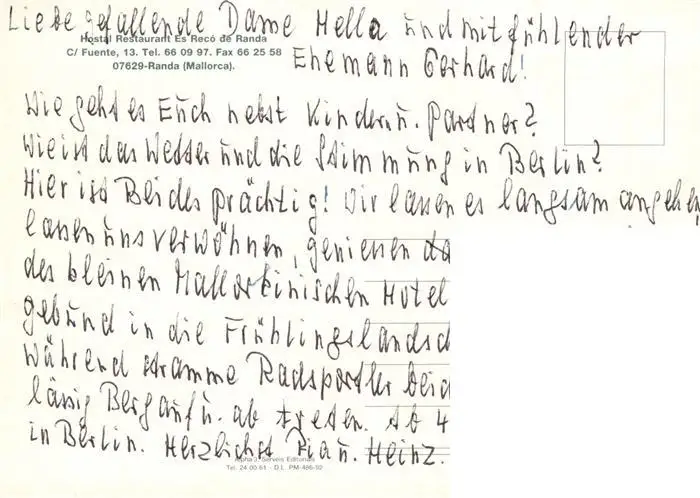 Liebe gefallende Dame Hella und mitfühlender
Hostal Restaurant Es Recó de Randa
C/ Fuente, 13. Tel. 66 09 97. Fax 66 25 58
07629-Randa (Mallorca).
Ehemann Gerhard!
Wie geht es Euch nebst Kindern u. Partner?
Wie ist das Wetter und die Stimmung in Berlin?
Hier ist Beides prächtig! Wir lassen es langsam angehen
lassen uns verwöhnen, geniessen da
des kleinen Mallorkinischen Hotel
gebund in die Frühlingslandsc
während stramme Radsportler beid
lässig Bergauf u. ab treten. Ab 4
in Berlin. Herzlichst Pia u. Heinz.
Alpha 3. Serveis Editorials
Tel. 24 00 61 - D.L. PM-486-92